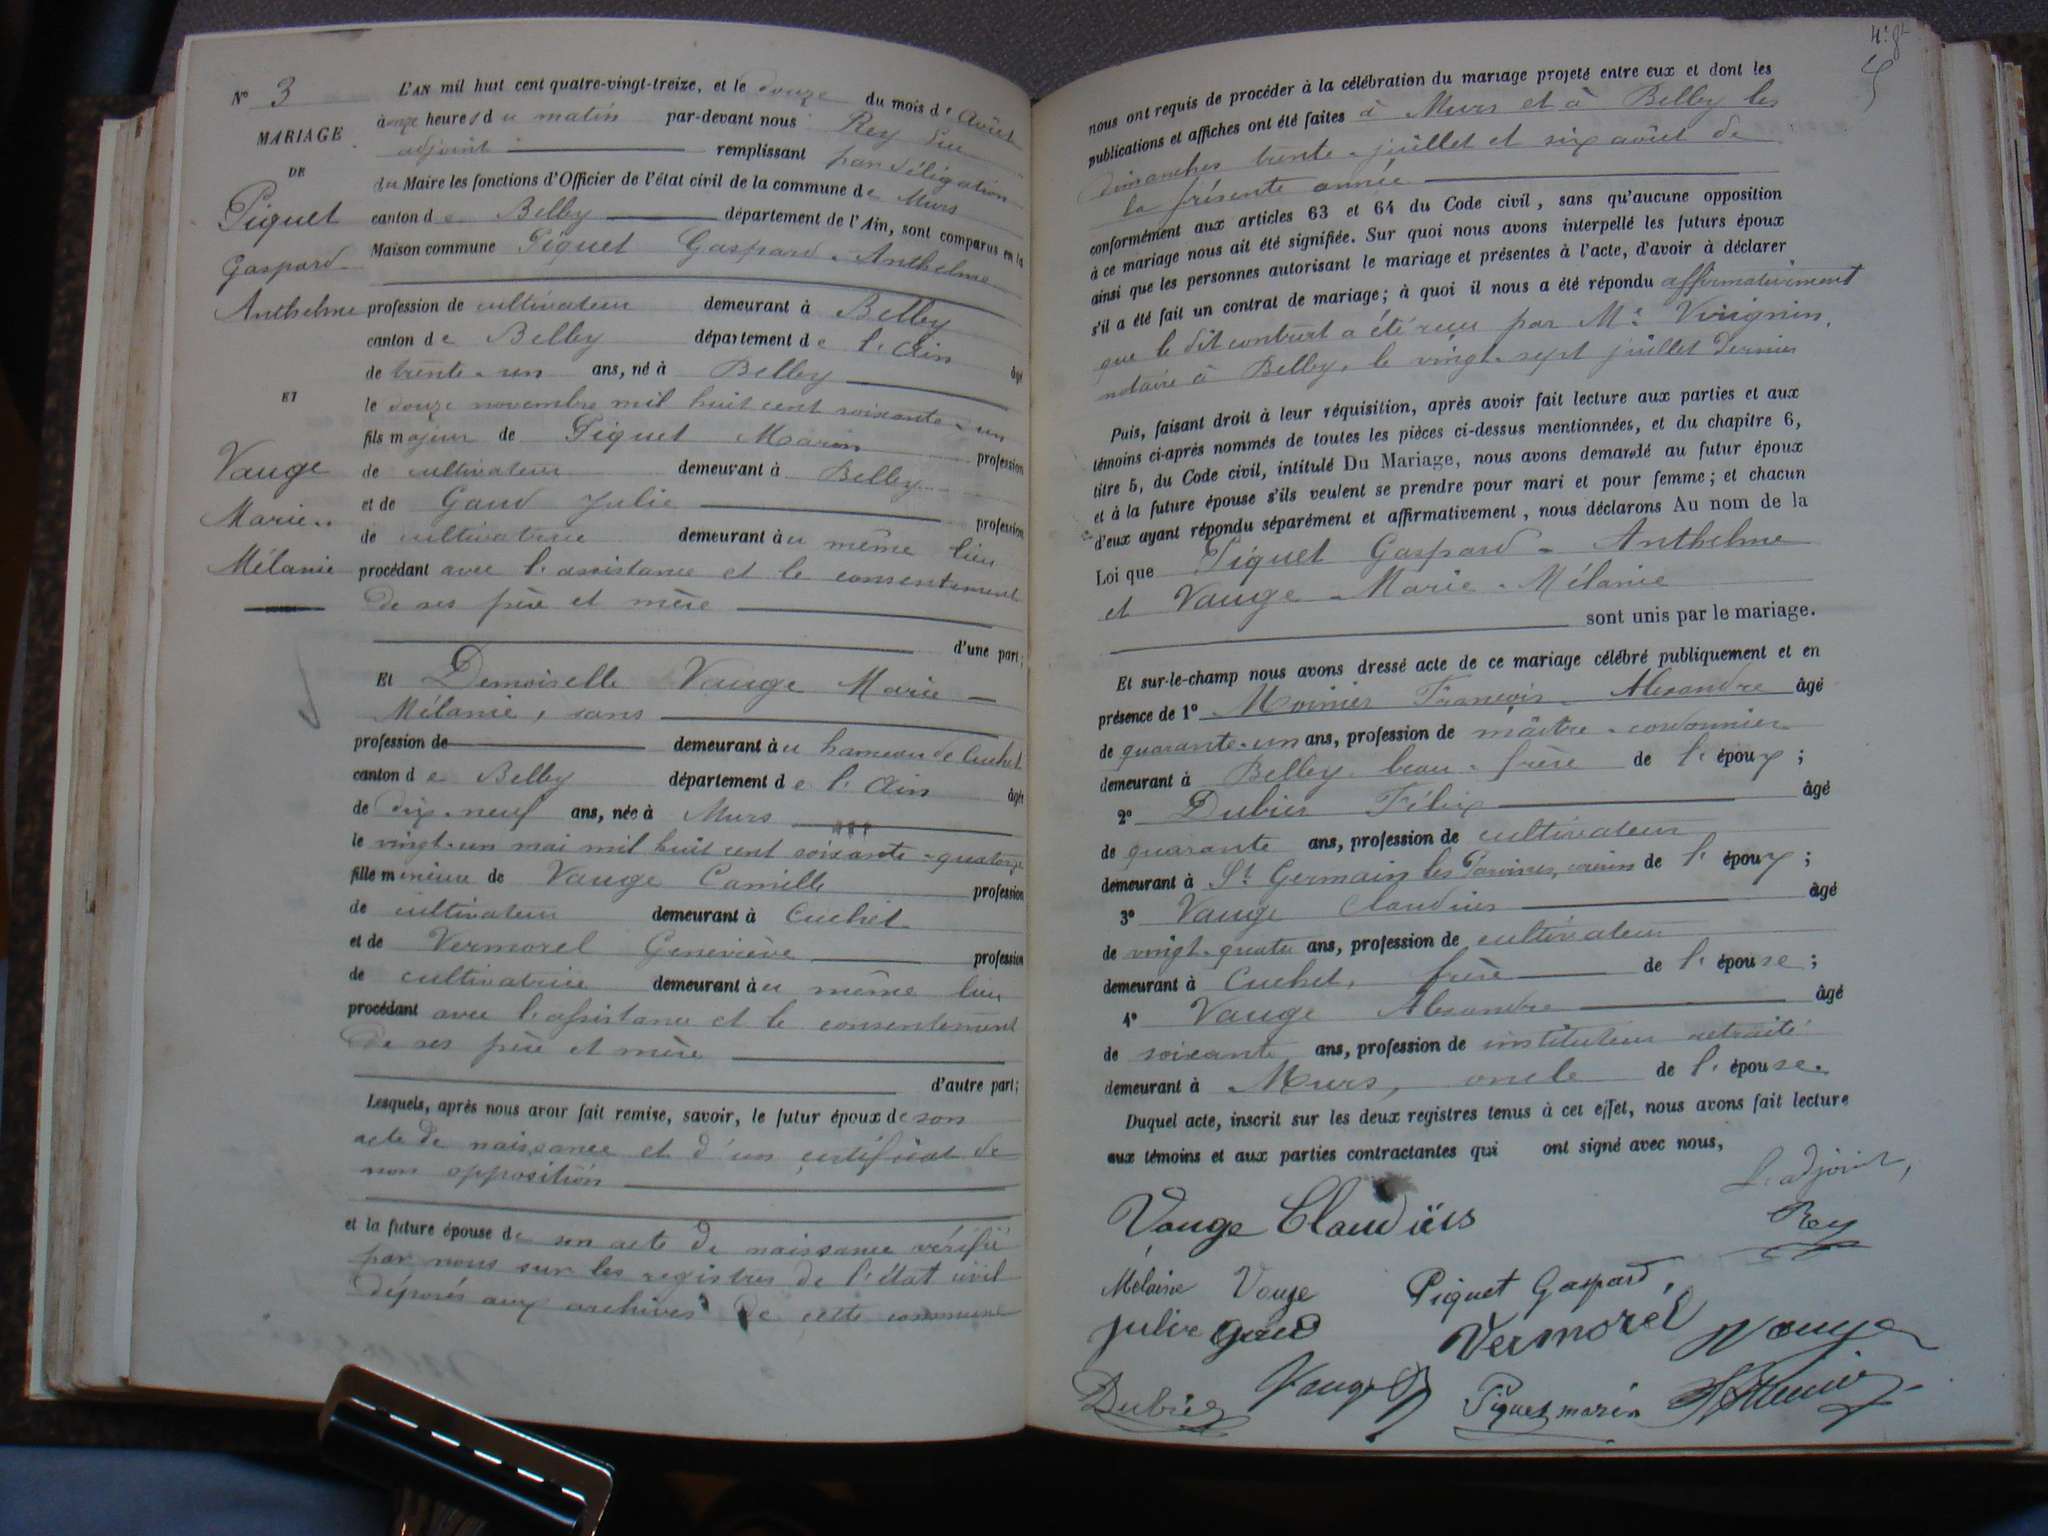 N° 3
MARIAGE
DE
Piquet
Gaspard
Anthelme
ET
Vauge
Marie
Mélanie
L'AN mil huit cent quatre-vingt-treize, et le douze du mois de Août
à onze heures du matin par-devant nous Rey
adjoint remplissant par délégation
du Maire les fonctions d'Officier de l'état civil de la commune de Murs
canton de Belley département de l'Ain, sont comparus en la
Maison commune Piquet Gaspard-Anthelme
profession de cultivateur demeurant à Belley
canton de Belley département de l'Ain âgé
de trente-un ans, né à Belley
le douze novembre mil huit cent soixante-un
fils majeur de Piquet Marin profession
de cultivateur demeurant à Belley
et de Gaud Julie profession
de cultivatrice demeurant au même lieu
procédant avec l'assistance et le consentement
de ses père et mère
d'une part;
Et Demoiselle Vauge Marie
Mélanie, sans
profession de demeurant au hameau de Cuchet
canton de Belley département de l'Ain âgée
de dix-neuf ans, née à Murs
le vingt-un mai mil huit cent soixante-quatorze
fille mineure de Vauge Camille profession
de cultivateur demeurant à Cuchet
et de Vermorel Geneviève profession
de cultivatrice demeurant au même lieu
procédant avec l'assistance et le consentement
de ses père et mère
d'autre part;
Lesquels, après nous avoir fait remise, savoir, le futur époux de son
acte de naissance et d'un certificat de
non opposition
et la future épouse de son acte de naissance vérifié
par nous sur les registres de l'état civil
déposés aux archives de cette commune
5
nous ont requis de procéder à la célébration du mariage projeté entre eux et dont les
publications et affiches ont été faites à Murs et à Belley les
dimanches trente-juillet et six août de
la présente année
conformément aux articles 63 et 64 du Code civil, sans qu'aucune opposition
à ce mariage nous ait été signifiée. Sur quoi nous avons interpellé les futurs époux
ainsi que les personnes autorisant le mariage et présentes à l'acte, d'avoir à déclarer
s'il a été fait un contrat de mariage; à quoi il nous a été répondu affirmativement
que le dit contrat a été reçu par Me
notaire à Belley, le vingt-sept juillet dernier
Puis, faisant droit à leur réquisition, après avoir fait lecture aux parties et aux
témoins ci-après nommés de toutes les pièces ci-dessus mentionnées, et du chapitre 6,
titre 5, du Code civil, intitulé Du Mariage, nous avons demandé au futur époux
et à la future épouse s'ils veulent se prendre pour mari et pour femme; et chacun
d'eux ayant répondu séparément et affirmativement, nous déclarons Au nom de la
Loi que Piquet Gaspard-Anthelme
et Vauge-Marie-Mélanie
sont unis par le mariage.
Et sur-le-champ nous avons dressé acte de ce mariage célébré publiquement et en
présence de 1° François-Alexandre âgé
de quarante-un ans, profession de maître-cordonnier
demeurant à Belley, beau-frère de l'époux;
2° Dubier Félix âgé
de quarante ans, profession de cultivateur
demeurant à St Germain les Paroisses, cousin de l'époux;
3° Vauge Claudius âgé
de vingt-quatre ans, profession de cultivateur
demeurant à Cuchet, frère de l'épouse;
4° Vauge Alexandre âgé
de soixante ans, profession de instituteur retraité
demeurant à Murs, oncle de l'épouse.
Duquel acte, inscrit sur les deux registres tenus à cet effet, nous avons fait lecture
aux témoins et aux parties contractantes qui ont signé avec nous,
L'adjoint,
Vauge Claudius
Rey
Mélanie Vauge Piquet Gaspard,
julie gaud Vermorel Vauge
Dubier Vauge Piquet marin